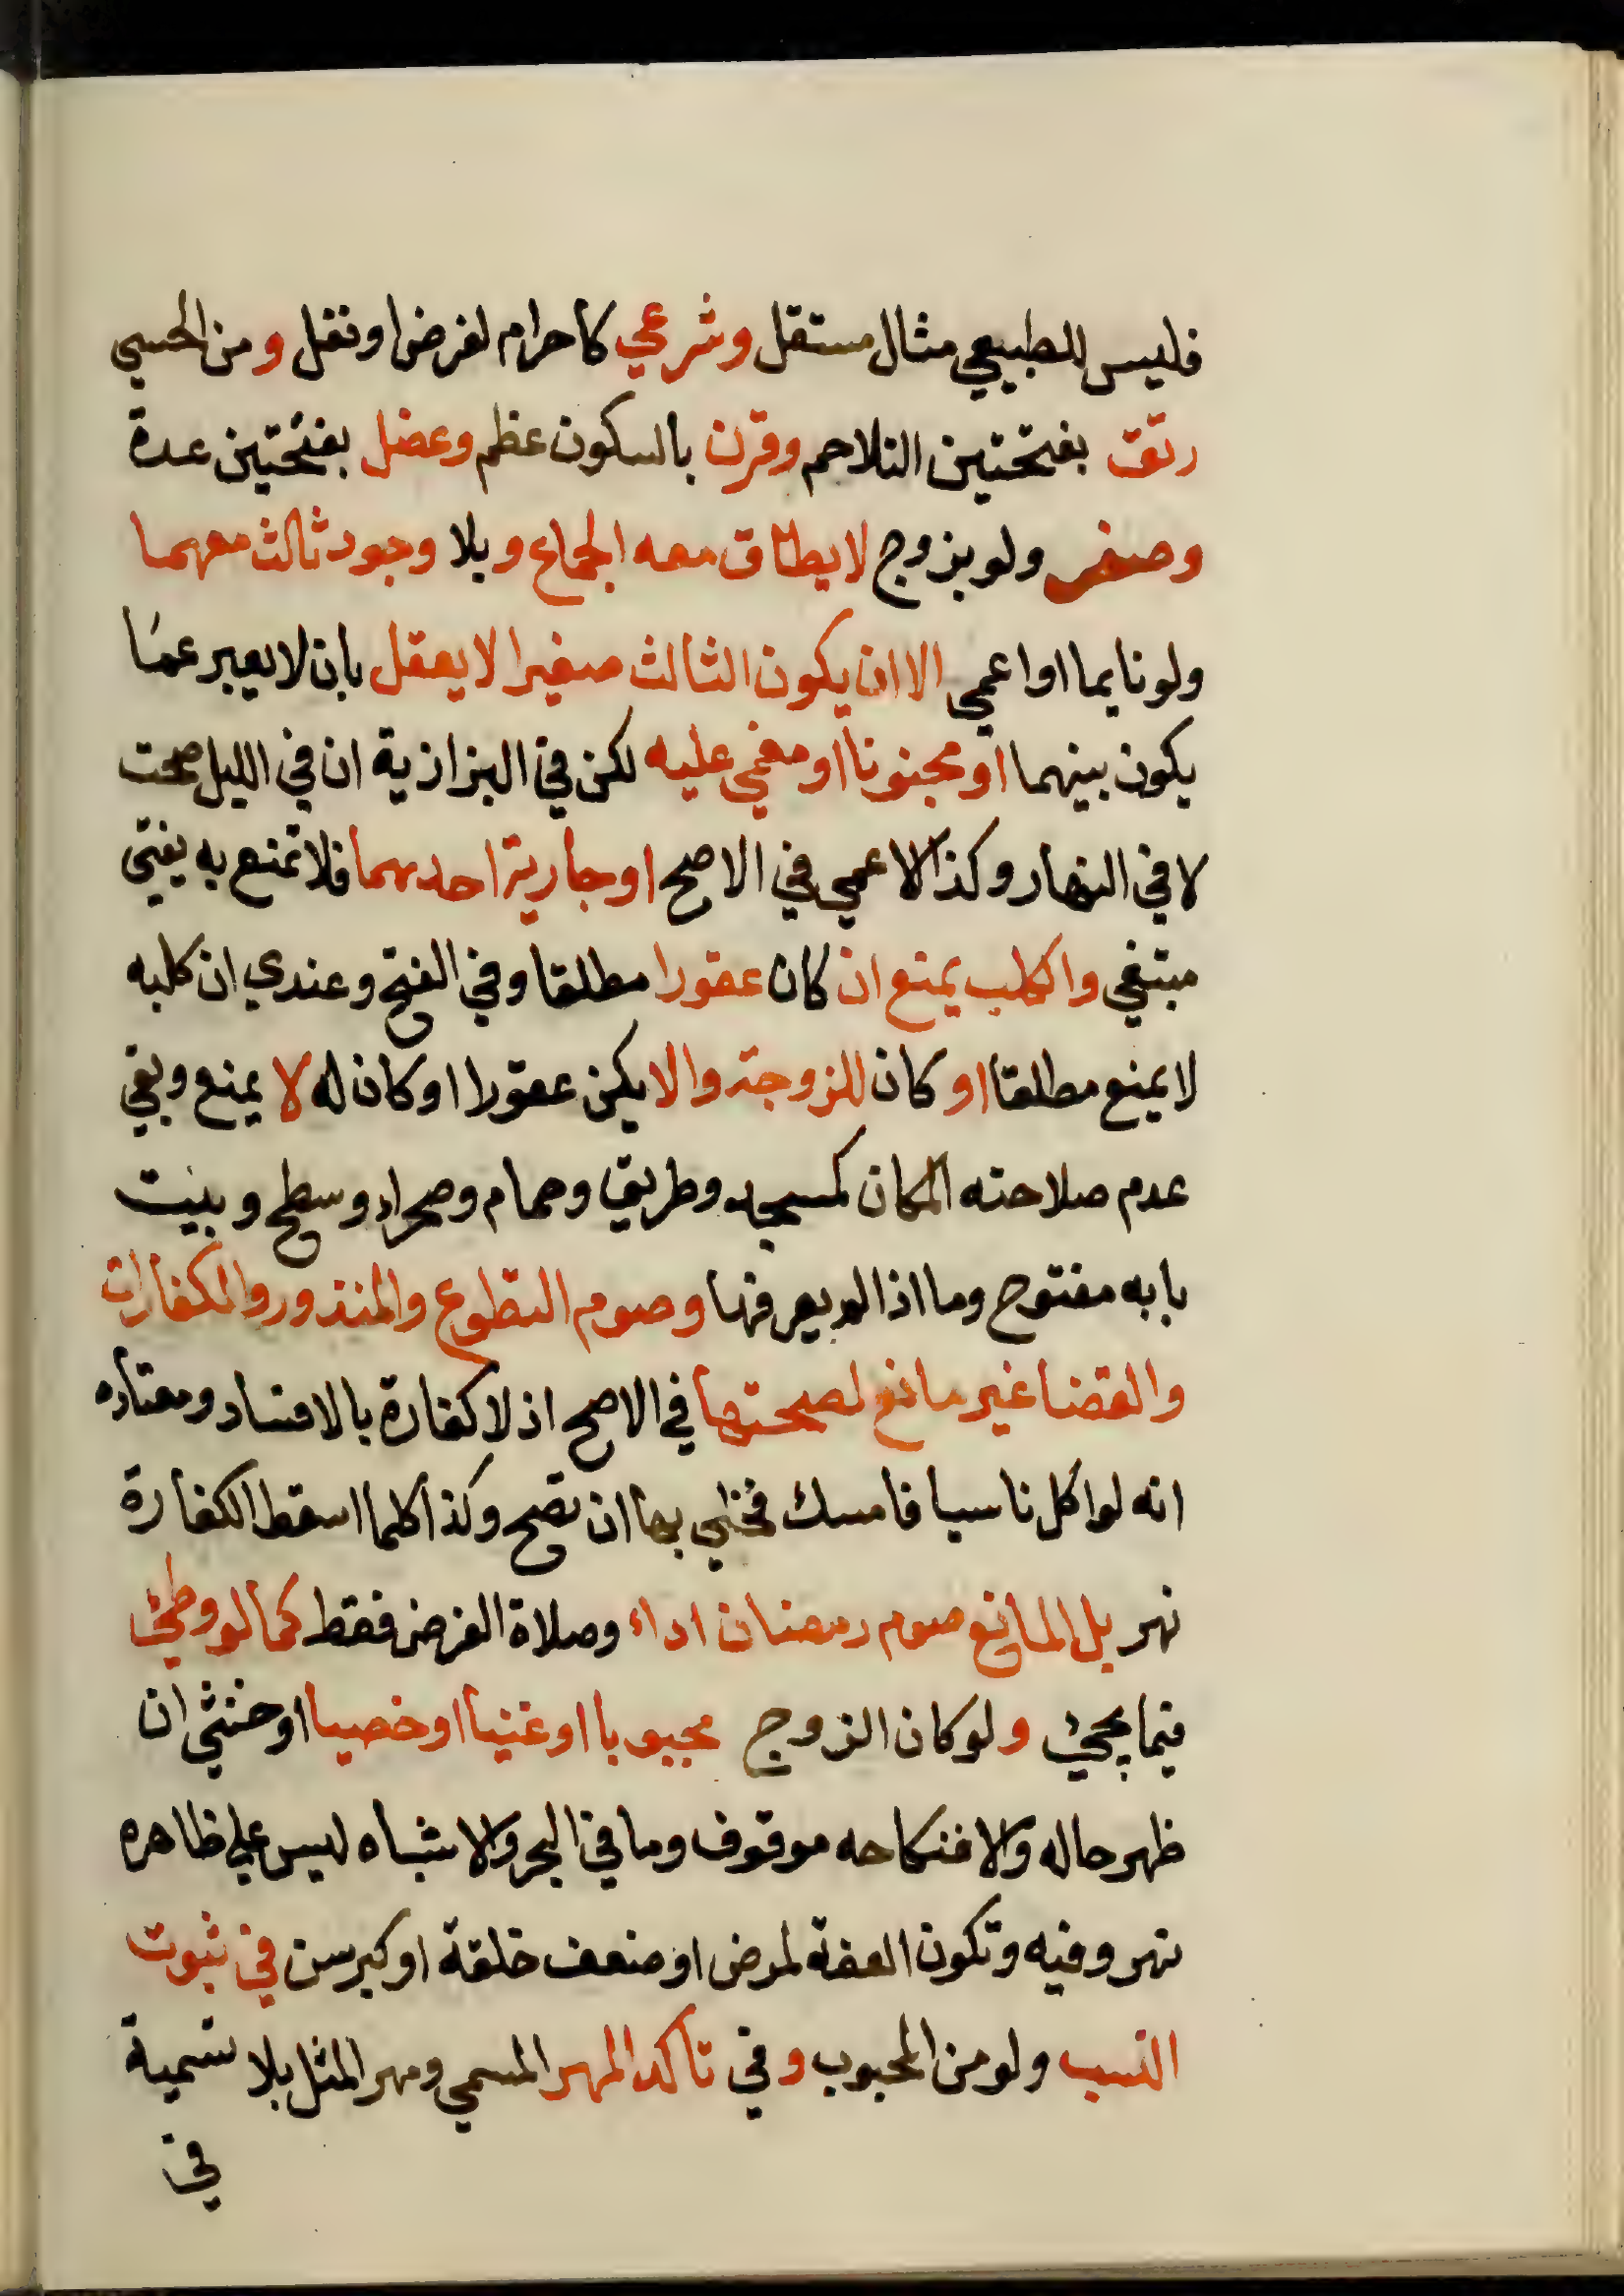 فليس للطبيعي مثال مستقل وشرعي كاحرام لفرض او نفل ومن الحسي
رتق بفتحتين التلاحم وقرن بالسكون عظم وعضل بفتحتين عدة
وصغر ولو بزوج لا يطاق معه الجماع وبلا وجود ثالث معهما
ولو نايما او اعمي الا ان يكون الثالث صغيرا لا يعقل بان لا يعبر عما
يكون بينهما او مجنونا او مغمي عليه لكن في البزازية ان في الليل صحت
لا في النهار وكذا الاعمي في الاصح او جارية احدهما فلا تمنع به يفتي
مبتغي والكلب يمنع ان كان عقورا مطلقا وفي الفتح وعندي ان كلبه
لا يمنع مطلقا او كان للزوجة والا يكن عقورا او كان له لا يمنع وبقي
عدم صلاحته المكان كمسجد وطريق وحمام وصحراء وسطح وبيت
بابه مفتوح وما اذا لم يعرفها وصوم التطوع والمنذور والكفارات
والقضا غير مانع لصحتها في الاصح اذ لا كفارة بالافساد ومفتاده
انه لو اكل ناسيا فامسك فخلي بها ان تصح وكذا كلما اسقط الكفارة
نهر بل المانع صوم رمضان اداء وصلاة الفرض فقط كما لو وطئ
فيما يجئ ولو كان الزوج مجبوبا او عنينا او خصيا او خنثي ان
ظهر حاله والا فنكاحه موقوف وما في البحر والاشباه ليس علي ظاهره
نهر وفيه وتكون العفة لمرض او ضعف خلقة او كبر سن في ثبوت
النسب ولو من المجبوب وفي تاكد المهر المسمي ومهر المثل بلا تسمية
في